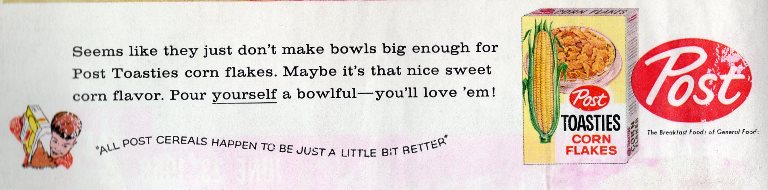 Seems like they just don't make bowls big enough for
Post Toasties corn flakes. Maybe it's that nice sweet
corn flavor. Pour yourself a bowlful—you'll love 'em!
"ALL POST CEREALS HAPPEN TO BE JUST A LITTLE BIT BETTER"
CORN FLAKES
Post
TOASTIES
CORN
FLAKES
Post
The Breakfast Foods of General Foods